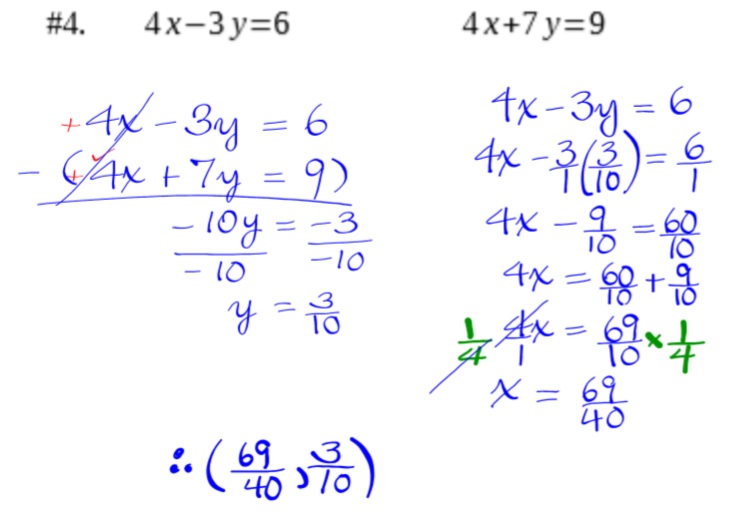 #4. 4x−3y=6 4x+7y=9
+4x − 3y = 6
− (+4x + 7y = 9)
−10y = −3
−10 −10
y = 3/10
4x − 3y = 6
4x − 3/1(3/10) = 6/1
4x − 9/10 = 60/10
4x = 60/10 + 9/10
1/4 4x/1 = 69/10 × 1/4
x = 69/40
∴ (69/40, 3/10)